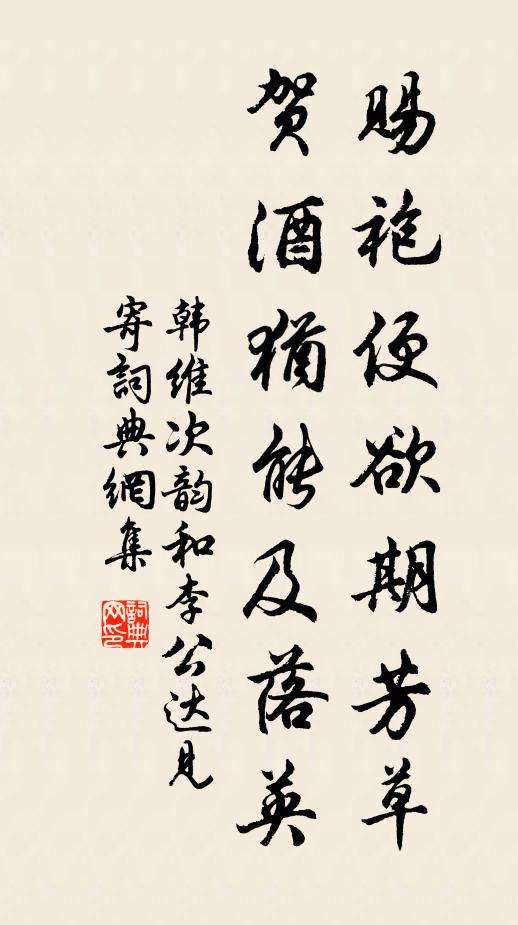 赐袍便欲期芳草
贺酒犹能及落英
韩维次韵和李公达见
寄詞典網集
詞典网印